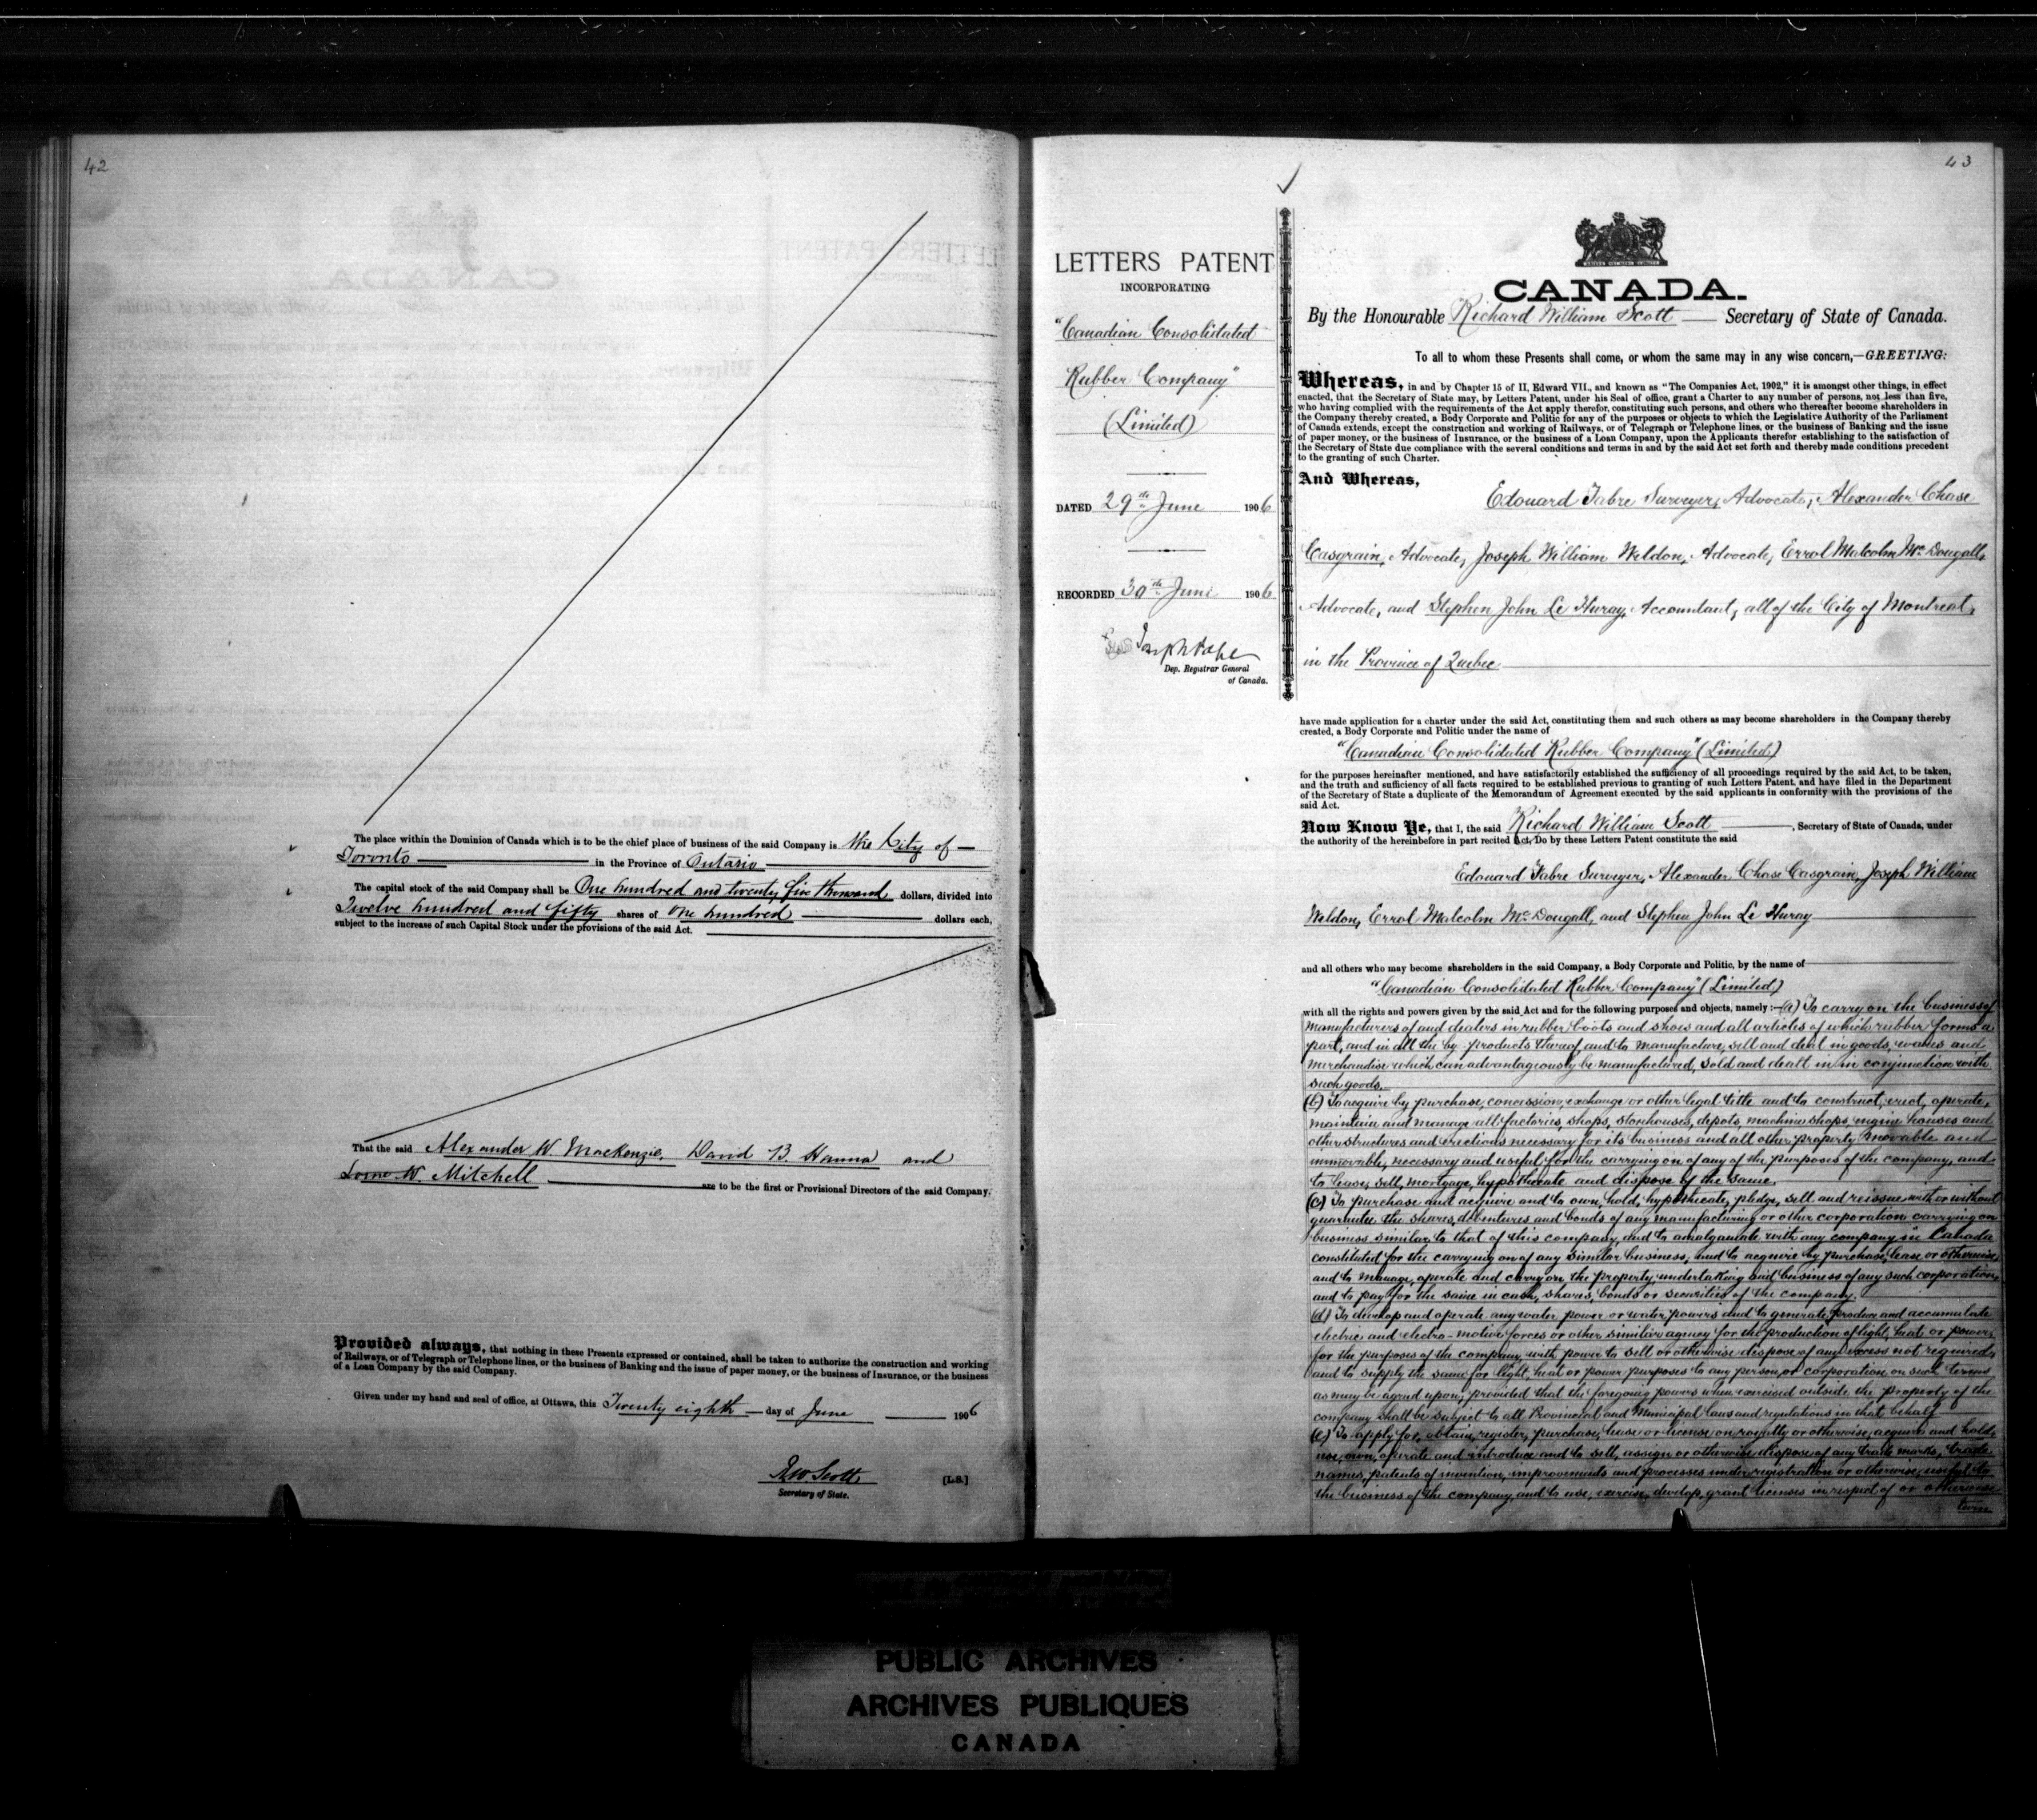 42
The place within the Dominion of Canada which is to be the chief place of business of the said Company is the City of
Toronto in the Province of Ontario
The capital stock of the said Company shall be One hundred and twenty five thousand dollars, divided into
Twelve hundred and fifty shares of One hundred dollars each,
subject to the increase of such Capital Stock under the provisions of the said Act.
That the said Alexander W. MacKenzie, David B. Hanna and
Lorne W. Mitchell are to be the first or Provisional Directors of the said Company.
Provided always, that nothing in these Presents expressed or contained, shall be taken to authorize the construction and working
of Railways, or of Telegraph or Telephone lines, or the business of Banking and the issue of paper money, or the business of Insurance, or the business
of a Loan Company by the said Company.
Given under my hand and seal of office, at Ottawa, this Twenty eighth day of June 1906
R W Scott
Secretary of State.
[L.S.]
43
LETTERS PATENT
INCORPORATING
"Canadian Consolidated
Rubber Company"
(Limited)
DATED 29th June 1906
RECORDED 30th June 1906
Joseph Pope
Dep. Registrar General
of Canada.
CANADA.
By the Honourable Richard William Scott Secretary of State of Canada.
To all to whom these Presents shall come, or whom the same may in any wise concern,—GREETING:
Whereas, in and by Chapter 15 of II, Edward VII., and known as "The Companies Act, 1902," it is amongst other things, in effect
enacted, that the Secretary of State may, by Letters Patent, under his Seal of office, grant a Charter to any number of persons, not less than five,
who having complied with the requirements of the Act apply therefor, constituting such persons, and others who thereafter become shareholders in
the Company thereby created, a Body Corporate and Politic for any of the purposes or objects to which the Legislative Authority of the Parliament
of Canada extends, except the construction and working of Railways, or of Telegraph or Telephone lines, or the business of Banking and the issue
of paper money, or the business of Insurance, or the business of a Loan Company, upon the Applicants therefor establishing to the satisfaction of
the Secretary of State due compliance with the several conditions and terms in and by the said Act set forth and thereby made conditions precedent
to the granting of such Charter.
And Whereas,
Edouard Fabre Surveyer, Advocate, Alexander Chase
Casgrain, Advocate, Joseph William Weldon, Advocate, Errol Malcolm McDougall,
Advocate, and Stephen John Le Huray, Accountant, all of the City of Montreal,
in the Province of Quebec
have made application for a charter under the said Act, constituting them and such others as may become shareholders in the Company thereby
created, a Body Corporate and Politic under the name of
"Canadian Consolidated Rubber Company" (Limited)
for the purposes hereinafter mentioned, and have satisfactorily established the sufficiency of all proceedings required by the said Act, to be taken,
and the truth and sufficiency of all facts required to be established previous to granting of such Letters Patent, and have filed in the Department
of the Secretary of State a duplicate of the Memorandum of Agreement executed by the said applicants in conformity with the provisions of the
said Act.
Now Know Ye, that I, the said Richard William Scott, Secretary of State of Canada, under
the authority of the hereinbefore in part recited Act, Do by these Letters Patent constitute the said
Edouard Fabre Surveyer, Alexander Chase Casgrain, Joseph William
Weldon, Errol Malcolm McDougall, and Stephen John Le Huray
and all others who may become shareholders in the said Company, a Body Corporate and Politic, by the name of
"Canadian Consolidated Rubber Company" (Limited)
with all the rights and powers given by the said Act and for the following purposes and objects, namely:—(a) To carry on the business of
manufacturers of and dealers in rubber boots and shoes and all articles of which rubber forms a
part, and in all the by products thereof and to manufacture, sell and deal in goods, wares and
merchandise which can advantageously be manufactured, sold and dealt in in conjunction with
such goods.
(b) To acquire by purchase, concession, exchange or other legal title and to construct, erect, operate,
maintain and manage all factories, shops, storehouses, depots, machine shops, engine houses and
other structures and erections necessary for its business and all other property movable and
immovable, necessary and useful for the carrying on of any of the purposes of the company, and
to lease, sell, mortgage, hypothecate and dispose of the same.
(c) To purchase and acquire and to own, hold, hypothecate, pledge, sell and reissue with or without
guarantee the shares, debentures and bonds of any manufacturing or other corporation carrying on
business similar to that of this company, and to amalgamate with any company in Canada
constituted for the carrying on of any similar business, and to acquire by purchase, lease or otherwise,
and to manage, operate and carry on the property, undertaking and business of any such corporation,
and to pay for the same in cash, shares, bonds or securities of the company.
(d) To develop and operate any water power or water powers and to generate, produce and accumulate
electric and electro-motive forces or other similar agency for the production of light, heat or power,
for the purposes of the company, with power to sell or otherwise dispose of any excess not required,
and to supply the same for light, heat or power purposes to any person or corporation on such terms
as may be agreed upon; provided that the foregoing powers when exercised outside the property of the
company shall be subject to all Provincial and Municipal laws and regulations in that behalf
(e) To apply for, obtain, register, purchase, lease or license on royalty or otherwise, acquire and hold,
use, own, operate and introduce and to sell, assign or otherwise dispose of any trade marks, trade
names, patents of invention, improvements and processes under registration or otherwise, useful to
the business of the company, and to use, exercise, develop, grant licenses in respect of or otherwise
turn
PUBLIC ARCHIVES
ARCHIVES PUBLIQUES
CANADA